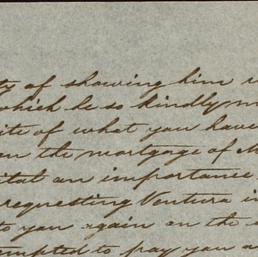 ty of showing him
which he so kindly
ite of what you have
on the mortgage of
ital an importance
requesting Ventura in
to you again on the
empted to pay you a